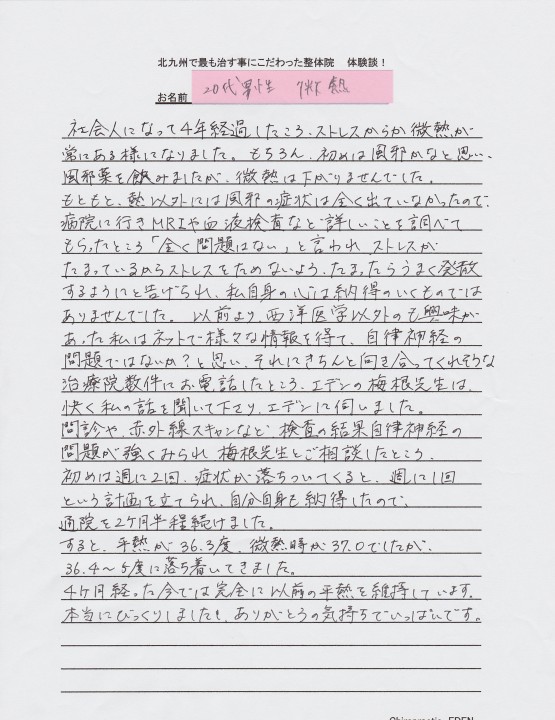 北九州で最も治す事にこだわった整体院　体験談！
お名前 20代男性 微熱
社会人になって4年経過したころ、ストレスからか微熱が
常にある様になりました。もちろん、初めは風邪かなと思い、
風邪薬を飲みましたが、微熱は下がりませんでした。
もともと、熱以外には風邪の症状は全く出ていなかったので
病院に行きMRIや血液検査など詳しいことを調べて
もらったところ「全く問題はない」と言われ、ストレスが
たまっているからストレスをためないよう、たまったらうまく発散
するようにと告げられ、私自身の心は納得のいくものでは
ありませんでした。以前より、西洋医学以外のも興味が
あった私はネットで様々な情報を得て、自律神経の
問題ではないか？と思い、それにきちんと向き合ってくれそうな
治療院数件にお電話したところ、エデンの梅根先生は、
快く私の話を聞いて下さり、エデンに伺いました。
問診や、赤外線スキャンなど、検査の結果自律神経の
問題が強くみられ梅根先生とご相談したところ、
初めは週に2回、症状が落ちついてくると、週に1回
という計画を立てられ、自分自身も納得したので、
通院を2ヶ月半程続けました。
すると、平熱が36.3度、微熱時が37.0でしたが、
36.4〜5度に落ち着いてきました。
4ヶ月経った今では完全に以前の平熱を維持しています。
本当にびっくりしましたし、ありがとうの気持ちでいっぱいです。
Chiropractic EDEN